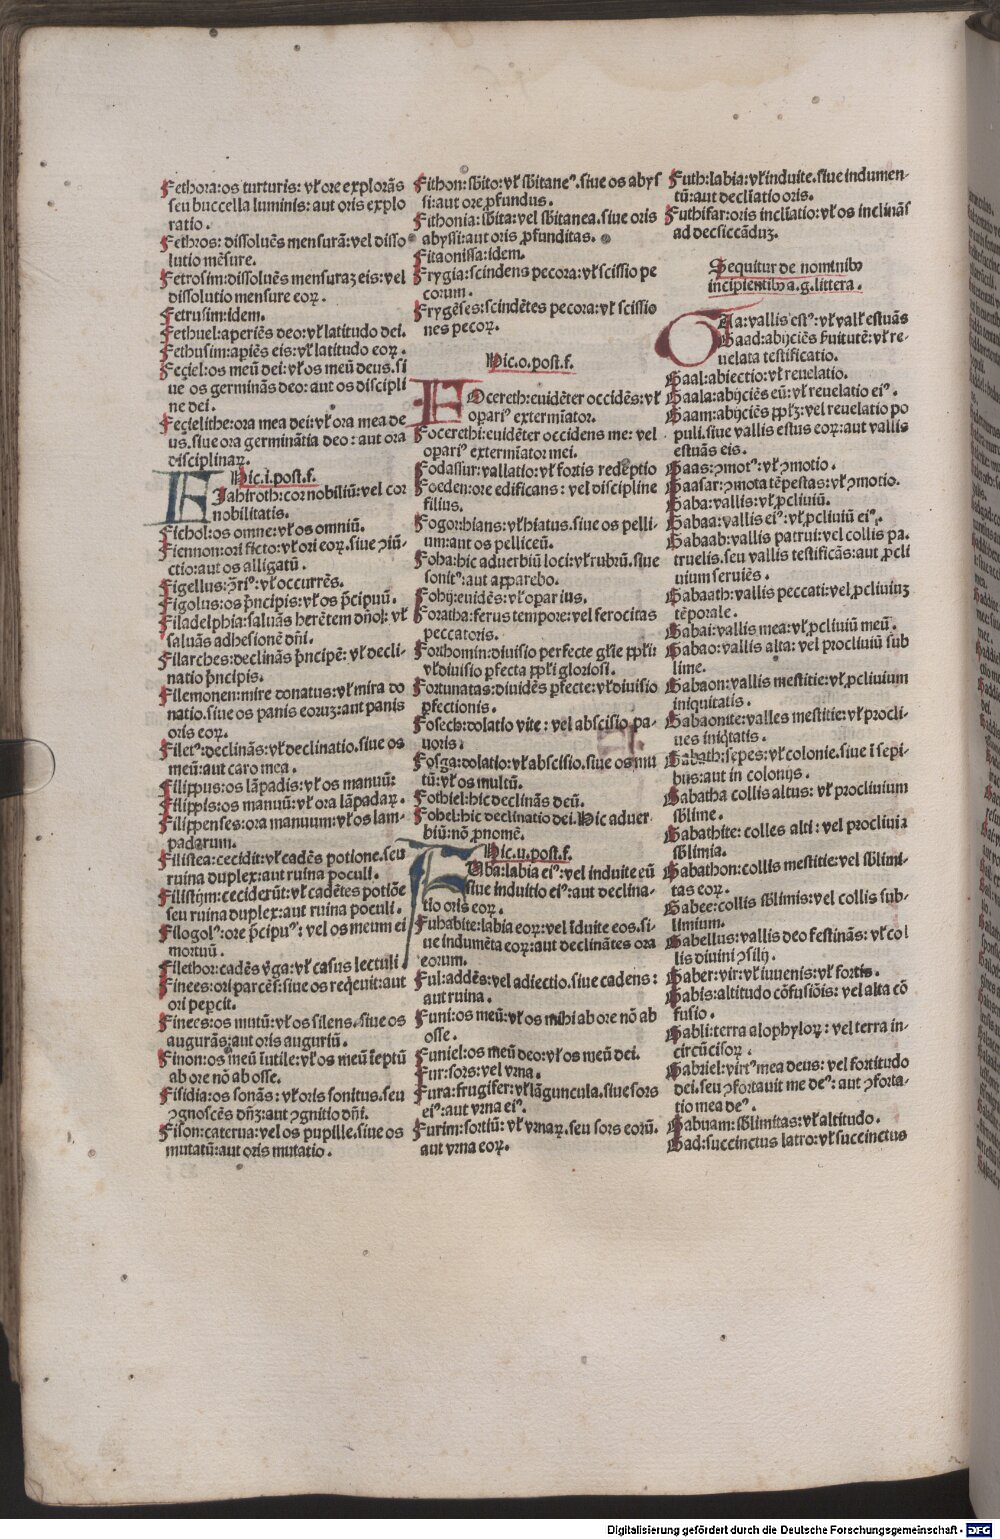 Fethora:os turturis: vł ore explorãs
seu buccella luminis: aut oris explo
ratio.
Fethros: dissoluẽs mensurã: vel disso
lutio mẽsure.
Fetrosim:dissoluẽs mensuraꝫ eis: vel
dissolutio mensure eoꝝ.
Fetrusim:idem.
Fethuel:aperiẽs deo:vł latitudo dei.
Fethusim:apiẽs eis:vł latitudo eoꝝ.
Feçiel:os meũ dei: vł os meũ deus. si
ue os germinãs deo: aut os discipli
ne dei.
Feçielithe:ora mea dei:vł ora mea de
us. siue ora germinãtia deo: aut ora
disciplinaꝝ.
Hic.i.post.f.
FIahiroth:cor nobiliũ:vel cor
nobilitatis.
Fichol:os omne:vł os omniũ.
Fiennon:ori ficto:vł ori eoꝝ.siue ꝯiũ-
ctio:aut os alligatũ.
Figellus:ꝯ̃riꝰ:vł occurrẽs.
Figolus:os p̃ncipis:vł os p̃cipuũ.
Filadelphia:saluãs herẽtem dño: vł
saluãs adhesionẽ dñi.
Filarches:declinãs p̃ncipẽ: vł decli-
natio p̃ncipis.
Filemonen:mire donatus:vł mira do
natio.siue os panis eoruꝫ:aut panis
oris eoꝝ.
Filetꝰ:declinãs:vł declinatio.siue os
meũ:aut caro mea.
Filippus:os lãpadis:vł os manuũ:
Filippis:os manuũ:vł ora lãpadaꝝ.
Filippenses:ora manuum:vł os lam-
padarum.
Filistea:cecidit:vł cadẽs potione.seu
ruina duplex:aut ruina poculi.
Filistijm:ceciderũt:vł cadẽtes potiõe
seu ruina duplex:aut ruina poculi.
Filogolꝰ:ore p̃cipuꝰ: vel os meum ei
mortuũ.
Filethor:cadẽs v̾ga:vł casus lectuli
Finees:ori parcẽs:siue os reqeuit:aut
ori pepcit.
Fineçs:os mutũ:vł os silens.siue os
augurãs:aut oris auguriũ.
Finon:os meũ ĩutile:vł os meũ ĩeptũ
ab ore nõ ab osse.
Fisidia:os sonãs: vł oris sonitus.seu
ꝯgnoscẽs dñꝫ:aut ꝯgnitio dñi.
Fison:caterua:vel os pupille.siue os
mutatũ:aut oris mutatio.
Fithon:sbito:vł sbitaneꝰ.siue os abys
si:aut ore ꝓfundus.
Fithonia:sbita:vel sbitanea.siue oris
abyssi:aut oris ꝓfunditas.
Fitaonissa:idem.
Frygia:scindens pecora:vł scissio pe
corum.
Frygẽses:scindẽtes pecora:vł scissio
nes pecoꝝ.
Hic.o.post.f.
FOcereth:euidẽter occidẽs:vł
opariꝰ extermĩator.
Focerethi:euidẽter occidens me: vel
opariꝰ extermĩator mei.
Fodassur:vallatio:vł fortis redẽptio
Foeden:ore edificans: vel discipline
filius.
Fogor:hians:vł hiatus.siue os pelli-
um:aut os pelliceũ.
Foha:hic aduerbiũ loci:vł rubrũ.siue
sonitꝰ:aut apparebo.
Fohij:euidẽs:vł opar ius.
Foratha:ferus tempore:vel ferocitas
peccatoris.
Forthomin:diuisio perfecte głie ꝓpłi:
vł diuisio pfecta ꝓpłi gloriosi.
Fortunatas:diuidẽs pfecte:vł diuisio
pfectionis.
Fosech:dolatio vite: vel abscisio pa-
uoris.
Fosga:dolatio:vł abscisio.siue os mu
tũ:vł os multũ.
Fothiel:hic declinãs deũ.
Fobel:hic declinatio dei.Hic aduer
biũ:nõ ꝓnomẽ.
Hic.u.post.f.
FUba:labia eiꝰ:vel induite eũ
siue induitio eiꝰ:aut declina-
tio oris eoꝝ.
Fuhabite:labia eoꝝ:vel ĩduite eos.si-
ue indumẽta eoꝝ:aut declinãtes ora
eorum.
Ful:addẽs:vel adiectio.siue cadens:
aut ruina.
Funi:os meũ:vł os mihi ab ore nõ ab
osse.
Funiel:os meũ deo:vł os meũ dei.
Fur:sors:vel vrna.
Fura:frugifer:vł lãguncula.siue sors
eiꝰ:aut vrna eiꝰ.
Furim:sortiũ: vł vrnaꝝ.seu sors eorũ.
aut vrna eoꝝ.
Futh:labia:vł induite.siue indumen-
tũ:aut declĩatio oris.
Futhifar:oris inclĩatio:vł os inclinãs
ad decsiccãduꝫ.
Sequitur de nominibꝰ
incipientibꝰ a.g.littera.
GIa:vallis estꝰ:vł vałł estuãs
Gaad:abijciẽs ẜuitutẽ:vł re-
uelata testificatio.
Gaal:abiectio:vł reuelatio.
Gaala:abijciẽs eũ:vł reuelatio eiꝰ.
Gaam:abijciẽs ꝓpłꝫ:vel reuelatio po
puli.siue vallis estus eoꝝ:aut vallis
estuãs eis.
Gaas:ꝯmotꝰ:vł ꝯmotio.
Gaasar:ꝯmota tẽpestas:vł ꝯmotio.
Gaba:vallis:vł ꝓcliuiũ.
Gabaa:vallis eiꝰ:vł ꝓcliuiũ eiꝰ.
Gabaab:vallis patrui:vel collis pa-
truelis.seu vallis testificãs:aut ꝓcli
uium seruiẽs.
Gabaath:vallis peccati:vel ꝓcliuiuꝫ
tẽporale.
Gabai:vallis mea:vł ꝓcliuiũ meũ.
Gabao:vallis alta: vel procliuiũ sub
lime.
Gabaon:vallis mestitie:vł ꝓcliuium
iniquitatis.
Gabaonite:valles mestitie:vł procli-
ues iniq̃tatis.
Gabath:sepes:vł colonie.siue ĩ sepi-
bus:aut in colonijs.
Gabatha collis altus: vł procliuium
sb̃lime.
Gabathite: colles alti: vel procliuia
sb̃limia.
Gabathon:collis mestitie:vel sb̃limi-
tas eoꝝ.
Gabee:collis sb̃limis:vel collis sub-
limium.
Gabellus:vallis deo festinãs: vł col
lis diuini ꝯsilij.
Gaber:vir:vł iuuenis:vł fortis.
Gabis:altitudo cõfusiõis: vel alta cõ
fusio.
Gabli:terra alophyloꝝ: vel terra in-
circũcisoꝝ.
Gabriel:virtꝰ mea deus: vel fortitudo
dei.seu ꝯfortauit me deꝰ: aut ꝯforta-
tio mea deꝰ.
Gabuam:sb̃limitas:vł altitudo.
Gad:succinctus latro:vł succinctus
Digitalisierung gefördert durch die Deutsche Forschungsgemeinschaft - DFG